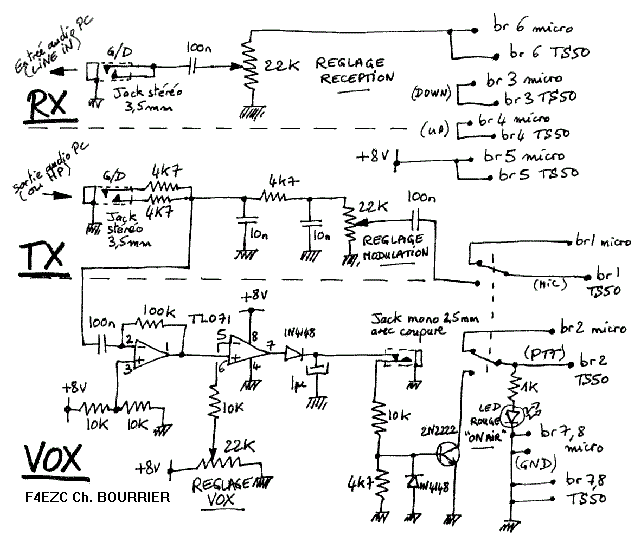 Entrée audio PC
(LINE IN)
G/D
100n
22K
REGLAGE
RECEPTION
Jack stéréo
3,5mm
RX
br 6 micro
br 6 TS50
br 3 micro
(DOWN)
br 3 TS50
br 4 micro
(UP)
br 4 TS50
+8V
br 5 micro
br 5 TS50
Sortie audio PC
(ou HP)
G/D
4k7
4k7
4k7
Jack
stéréo
3,5mm
10n
10n
22K
100n
REGLAGE
MODULATION
TX
br 1 micro
br 1
(MIC)
TS50
100n
100K
TL071
+8V
1N4148
Jack mono 2,5mm
avec coupure
2
3
1
5
6
8
7
4
1µ
br 2 micro
(PTT)
br 2
TS50
1K
LED
ROUGE
"ON AIR"
+8V
10K
10K
10K
10K
2N2222
br 7,8
micro
(GND)
VOX
+8V
22K
REGLAGE
VOX
4k7
1N4148
br 7,8
TS50
F4EZC Ch. BOURRIER